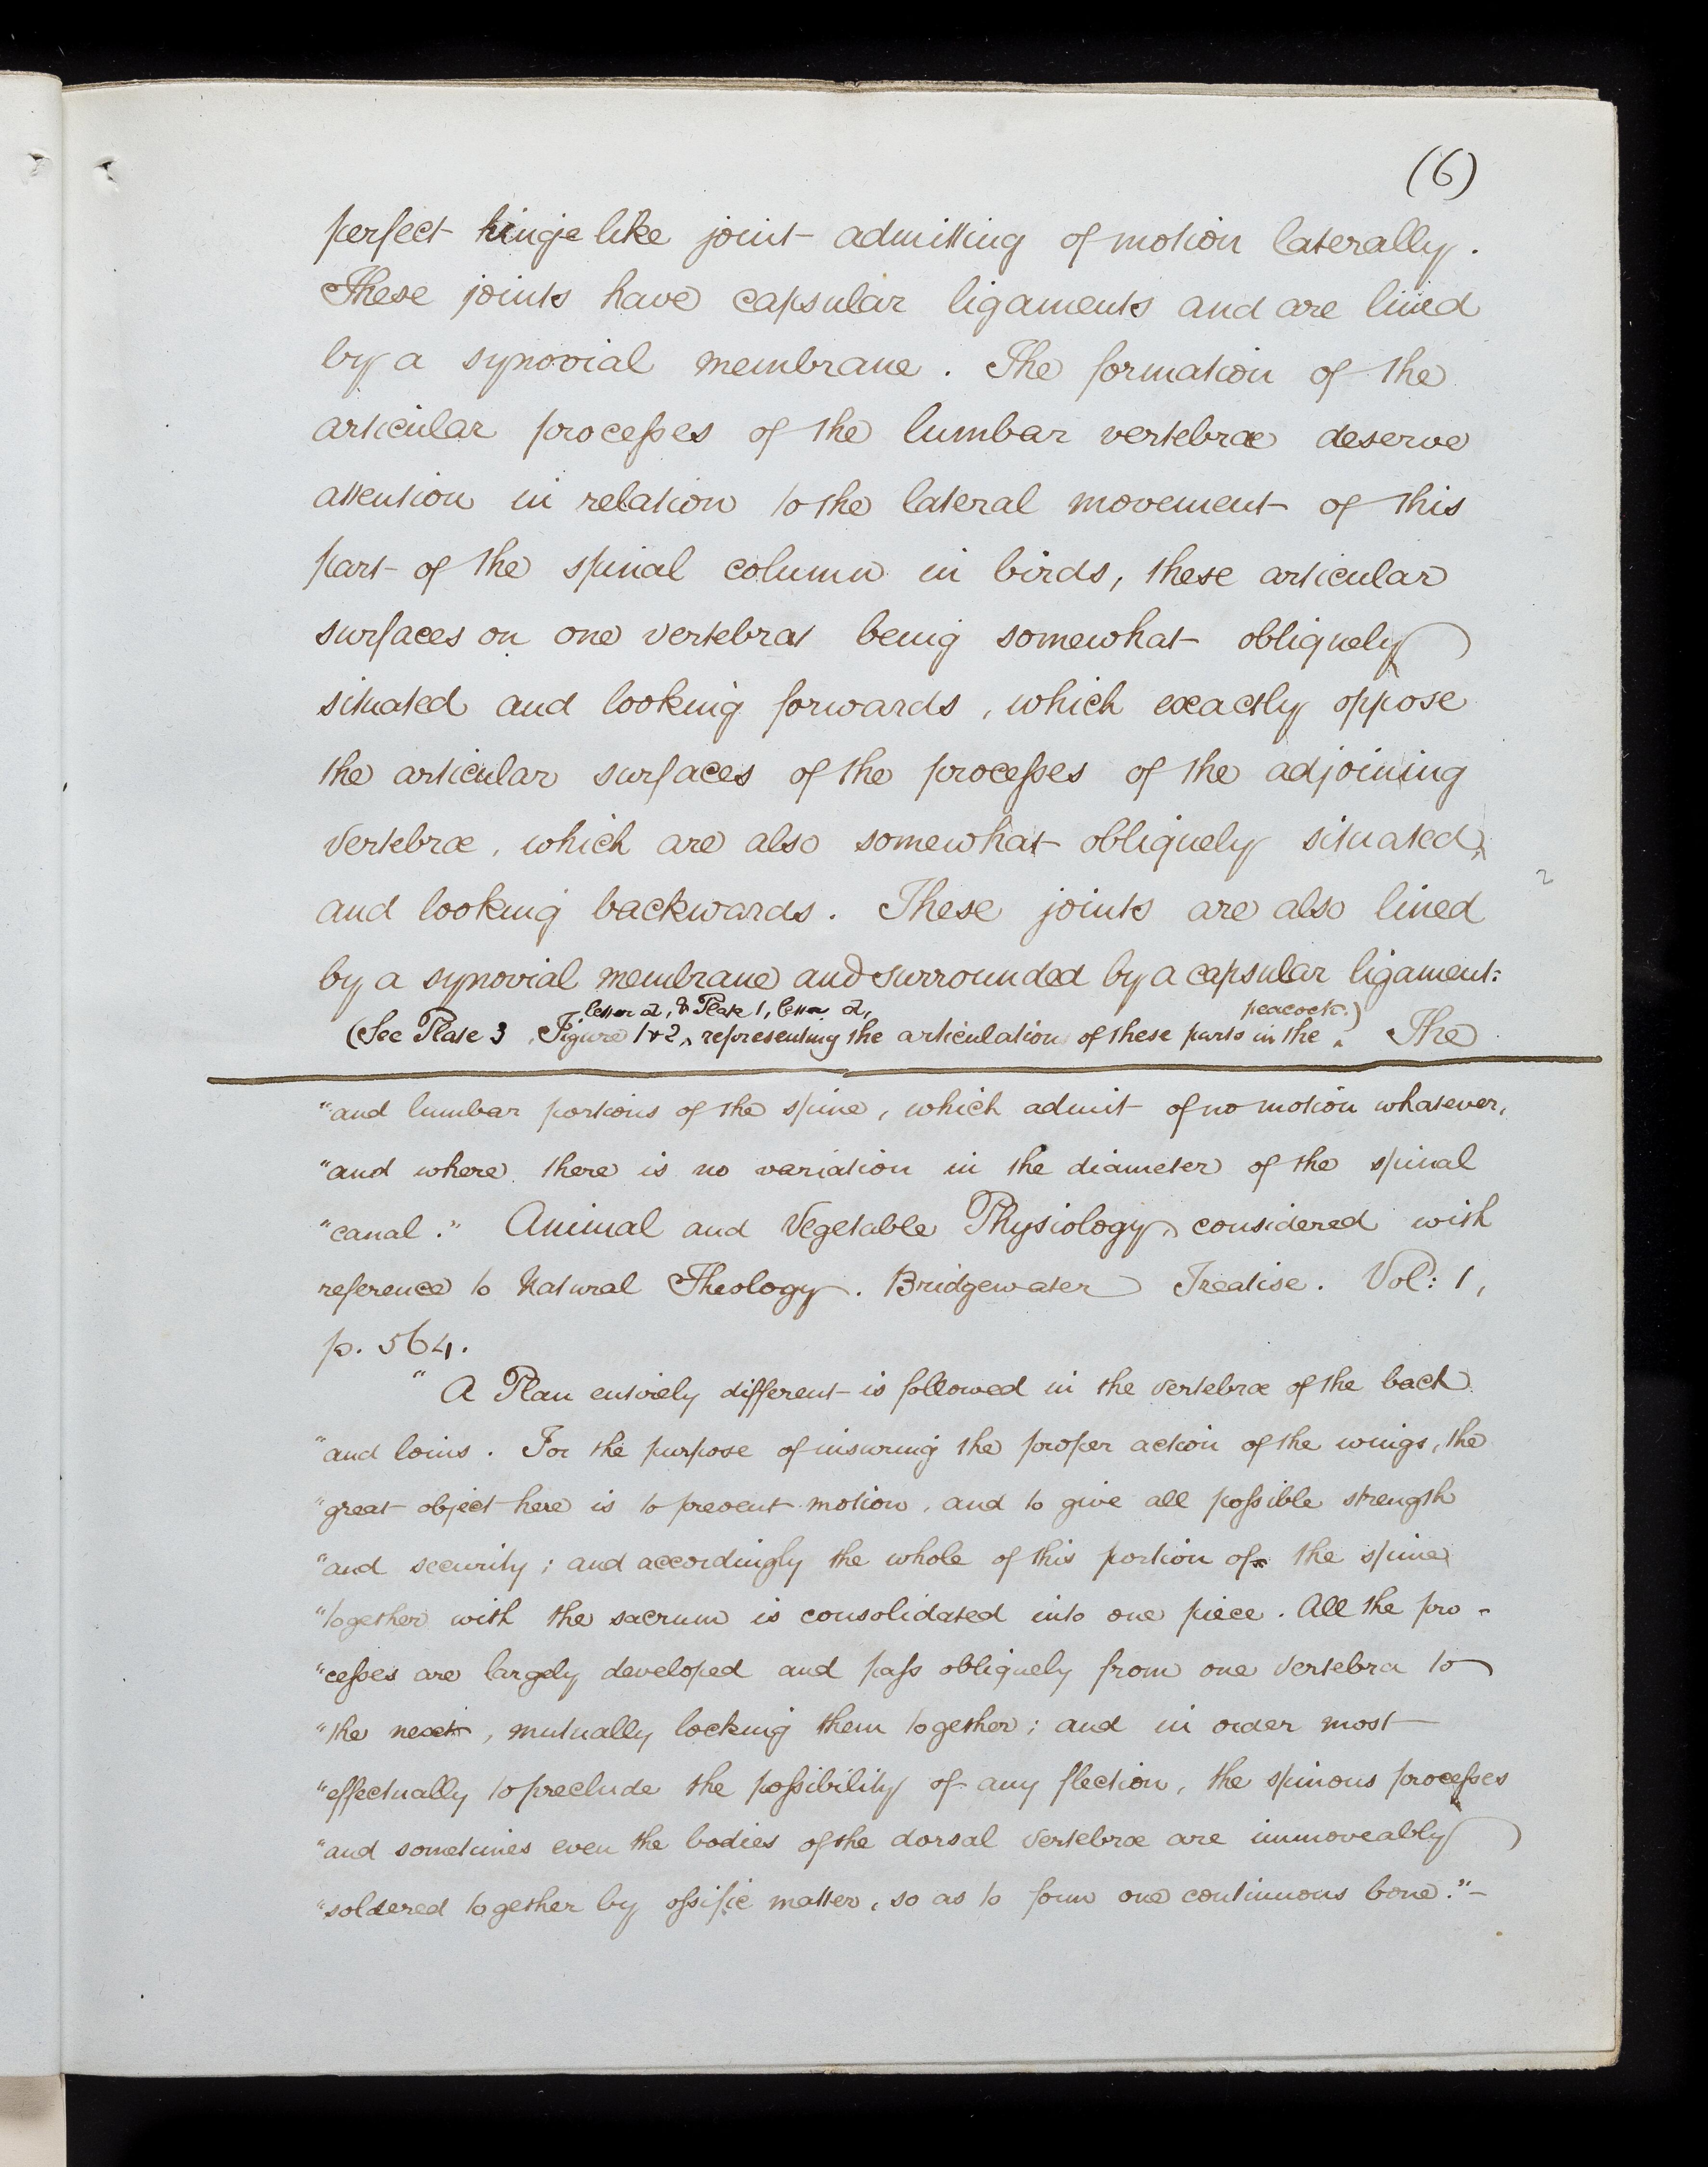 (6)
perfect hinge like joint admitting of motion laterally.
These joints have capsular ligaments and are lined
by a synovial membrane. The formation of the
articular processes of the lumbar vertebræ deserve
attention in relation to the lateral movement of this
part of the spinal column in birds, these articular
surfaces on one vertebrat being somewhat obliquely
situated and looking forwards, which exactly oppose
the articular surfaces of the processes of the adjoining
vertebræ, which are also somewhat obliquely situated,
2
and looking backwards. These joints are also lined
by a synovial membrane and surrounded by a capsular ligament:
letter a, & Plate 1, letter a, peacock.)
(See Plate 3 Figure 1 & 2, representing the articulation of these parts in the The
"and lumbar portions of the spine, which admit of no motion whatever,
"and where there is no variation in the diameter of the spinal
"canal." Animal and Vegetable Physiology, considered with
reference to Natural Theology. Bridgewater Treatise. Vol: 1,
p. 564.
"A Plan entirely different is followed in the vertebræ of the back
"and loins. For the purpose of insuring the proper action of the wings, the
"great object here is to prevent motion, and to give all possible strength
"and security; and accordingly the whole of this portion of the spine
"together with the sacrum is consolidated into one piece. All the pro-
"cesses are largely developed and pass obliquely from one vertebra to
"the next, mutually locking them together; and in order most
"effectually to preclude the possibility of any flection, the spinous processes
"and sometimes even the bodies of the dorsal vertebræ are immoveably
"soldered together by ossific matter, so as to form one continuous bone."-